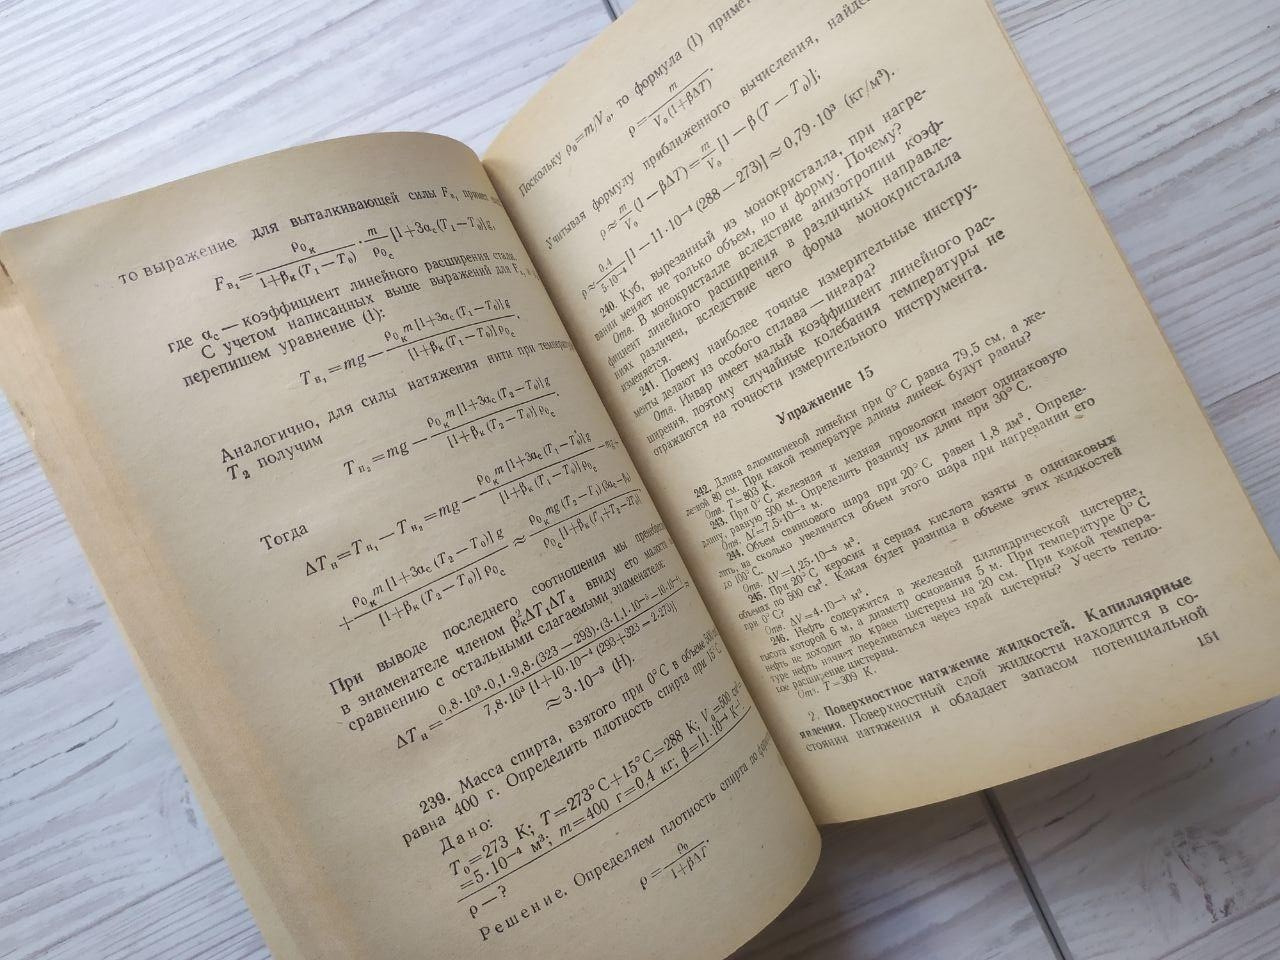 то выражение для выталкивающей силы F_в₁ примет
F_в₁ = ρ₀ₖ / (1+βₖ(T₁—T₀)) · m/ρ₀с [1+3αс(T₁—T₀)] g,
где αс — коэффициент линейного расширения стали.
С учетом написанных выше выражений для F_в₁
перепишем уравнение (1):
T_н₁ = mg — ρ₀ₖ m [1+3αс(T₁—T₀)] g / ([1+βₖ(T₁—T₀)] ρ₀с).
Аналогично, для силы натяжения нити при
T₂ получим
T_н₂ = mg — ρ₀ₖ m [1+3αс(T₂—T₀)] g / ([1+βₖ(T₂—T₀)] ρ₀с).
Тогда
ΔT_н = T_н₁ — T_н₂ = mg — ρ₀ₖ m [1+3αс(T₁—T₀)] g / ([1+βₖ(T₁—T₀)] ρ₀с) — mg+
+ ρ₀ₖ m [1+3αс(T₂—T₀)] g / ([1+βₖ(T₂—T₀)] ρ₀с) ≈ ρ₀ₖ mg (T₂—T₁) (3αс—βₖ) / (ρ₀с [1+βₖ(T₁+T₂—2T₀)])
При выводе последнего соотношения мы
в знаменателе членом βₖ²ΔT₁ΔT₂ ввиду его малости
сравнению с остальными слагаемыми знаменателя:
ΔT_н = 0,8·10³·0,1·9,8·(323—293)·(3·1,1·10⁻⁵—10·10⁻⁴) / (7,8·10³ [1+10·10⁻⁴ (293+323—2·273)]) ≈
≈3·10⁻³ (Н).
239. Масса спирта, взятого при 0°C в объеме 500
равна 400 г. Определить плотность спирта при 15°C
Дано:
T₀=273 K; T=273°C+15°C=288 K; V₀=500 см³=
=5·10⁻⁴ м³; m=400 г=0,4 кг; β=11·10⁻⁴ K⁻¹.
ρ — ?
Решение. Определяем плотность спирта по
ρ = ρ₀ / (1+βΔT).
Поскольку ρ₀=m/V₀, то формула (1)
ρ = m / (V₀(1+βΔT)).
Учитывая формулу приближенного вычисления,
ρ ≈ m/V₀ (1—βΔT) = m/V₀ [1—β(T—T₀)];
ρ ≈ 0,4 / (5·10⁻⁴) [1—11·10⁻⁴ (288—273)] ≈ 0,79·10³ (кг/м³).
240. Куб, вырезанный из монокристалла, при нагре-
вании меняет не только объем, но и форму. Почему?
Отв. В монокристалле вследствие анизотропии коэф-
фициент линейного расширения в различных направле-
ниях различен, вследствие чего форма монокристалла
изменяется.
241. Почему наиболее точные измерительные инстру-
менты делают из особого сплава — инвара?
Отв. Инвар имеет малый коэффициент линейного рас-
ширения, поэтому случайные колебания температуры не
отражаются на точности измерительного инструмента.
Упражнение 15
242. Длина алюминиевой линейки при 0°C равна 79,5 см, а же-
лезной 80 см. При какой температуре длины линеек будут равны?
Отв. T=803 K.
243. При 0°C железная и медная проволоки имеют одинаковую
длину, равную 500 м. Определить разницу их длин при 30°C.
Отв. Δl=7,5·10⁻² м.
244. Объем свинцового шара при 20°C равен 1,8 дм³. Опреде-
лить, на сколько увеличится объем этого шара при нагревании его
до 100°C.
Отв. ΔV=1,25·10⁻⁵ м³.
245. При 20°C керосин и серная кислота взяты в одинаковых
объемах по 500 см³. Какая будет разница в объеме этих жидкостей
при 0°C?
Отв. ΔV=4·10⁻⁵ м³.
246. Нефть содержится в железной цилиндрической цистерне,
высота которой 6 м, а диаметр основания 5 м. При температуре 0°C
нефть не доходит до краев цистерны на 20 см. При какой темпера-
туре нефть начнет переливаться через край цистерны? Учесть тепло-
вое расширение цистерны.
Отв. T=309 K.
2. Поверхностное натяжение жидкостей. Капиллярные
явления. Поверхностный слой жидкости находится в со-
стоянии натяжения и обладает запасом потенциальной
151